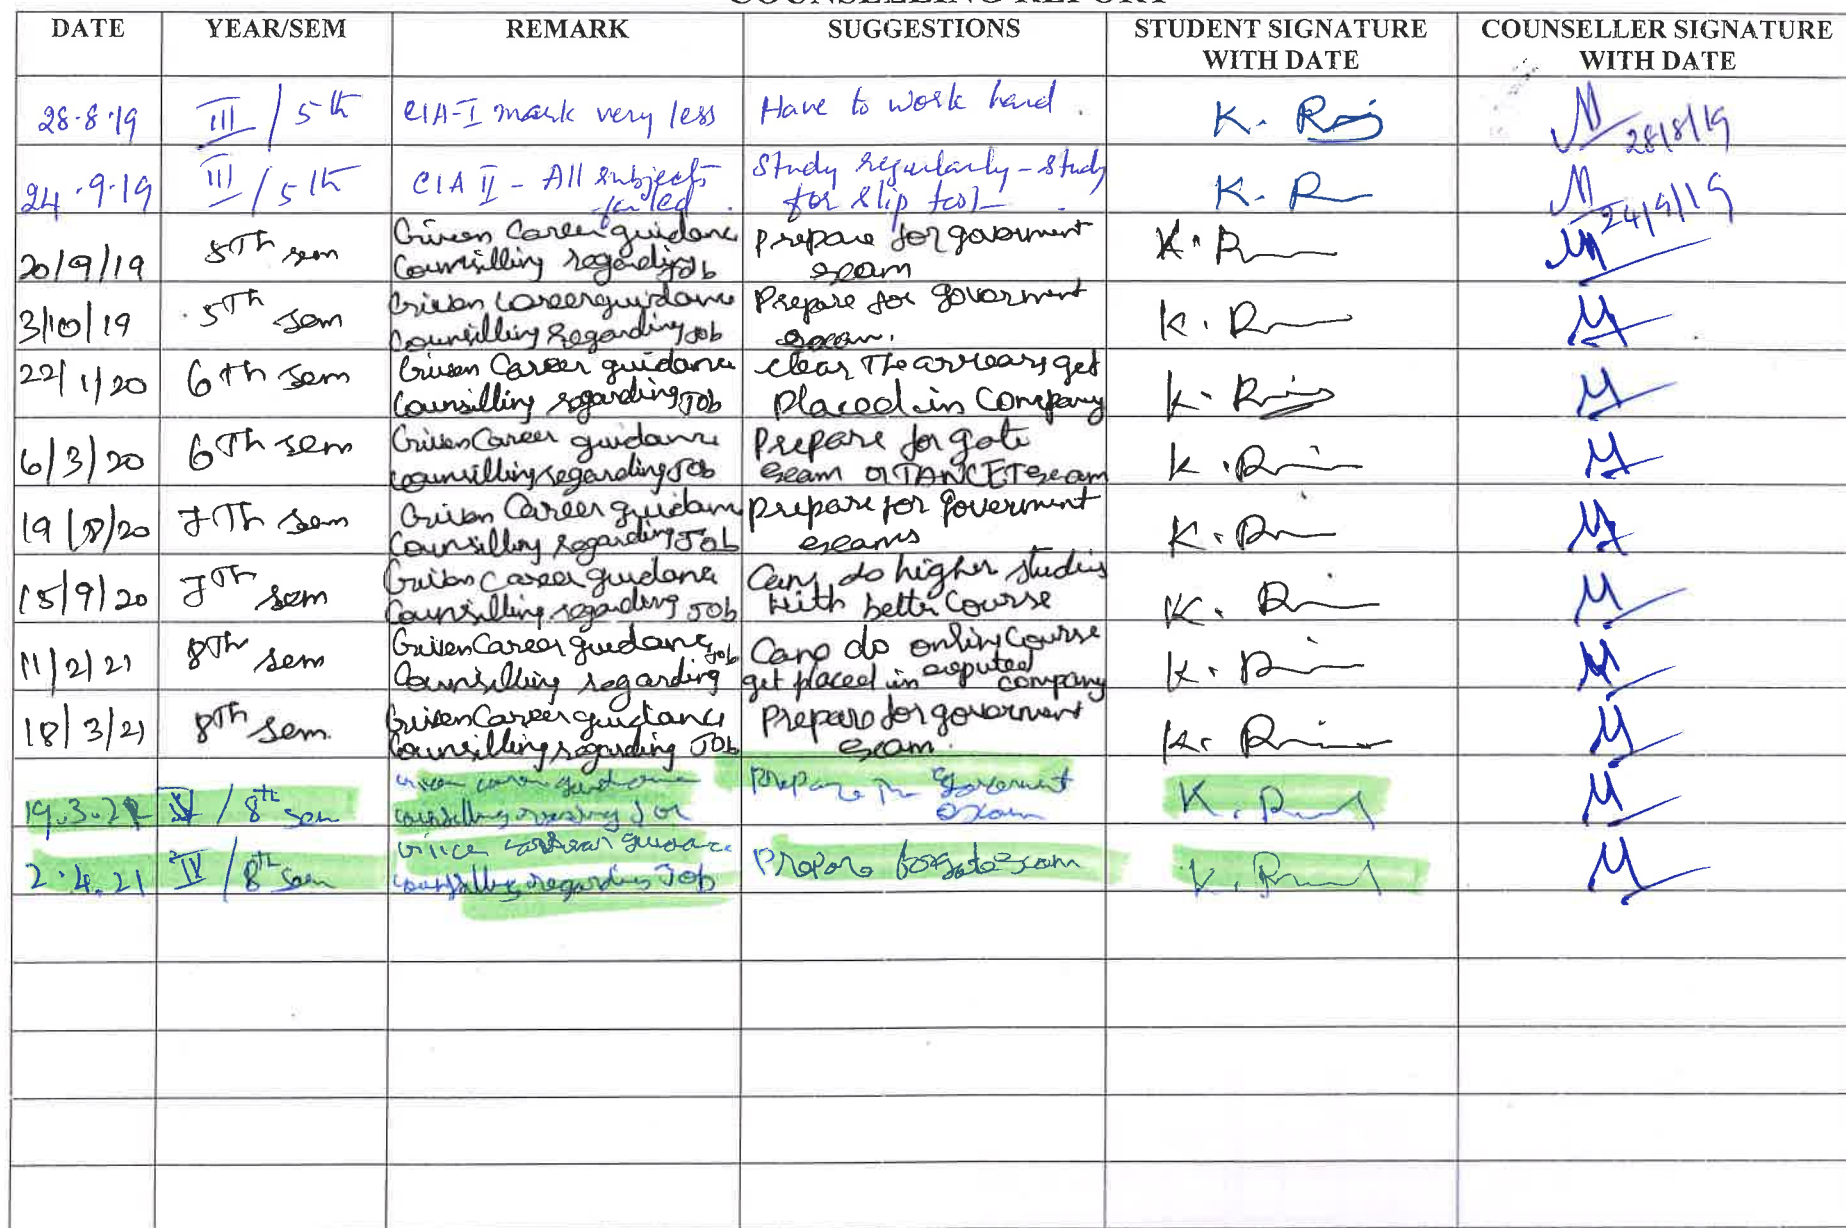 COUNSELLING REPORT
DATE YEAR/SEM REMARK SUGGESTIONS STUDENT SIGNATURE WITH DATE COUNSELLER SIGNATURE WITH DATE
28.8.19 III / 5th CIA-I mark very less Have to work hard. K. 28/8/19
24.9.19 III / 5th CIA II - All subjects failed. Study regularly - study for slip test K. R 24/9/19
20/9/19 5Th sem Given Career guidance Counsilling regarding Job Prepare for goverment exam K. R
3/10/19 5Th sem Given Career guidance Counsilling regarding Job Prepare for goverment exam. K. R
22/1/20 6th sem Given Career guidance Counsilling regarding Job clear The arrears get placed in Company K.
6/3/20 6Th sem Given Career guidance counsilling regarding Job Prepare for gate exam or TANCET exam K.
19/8/20 7Th sem Given Career guidance Counsilling regarding Job prepare for goverment exams K.
15/9/20 7Th sem Given Career guidance Counsilling regarding Job Can do higher studies with better Course K.
11/2/21 8Th sem Given Career guidance Counsilling regarding Job Can do onliny Course get placed in reputed company K.
18/3/21 8Th sem. Given Career guidance Counsilling regarding Job Prepare for goverment exam. K.
19.3.21 / 8th sem given career guidance counselling regarding Job Prepare exam K.
2.4.21 IV / 8th sem guidance regarding Job Prepare for gate exam K.